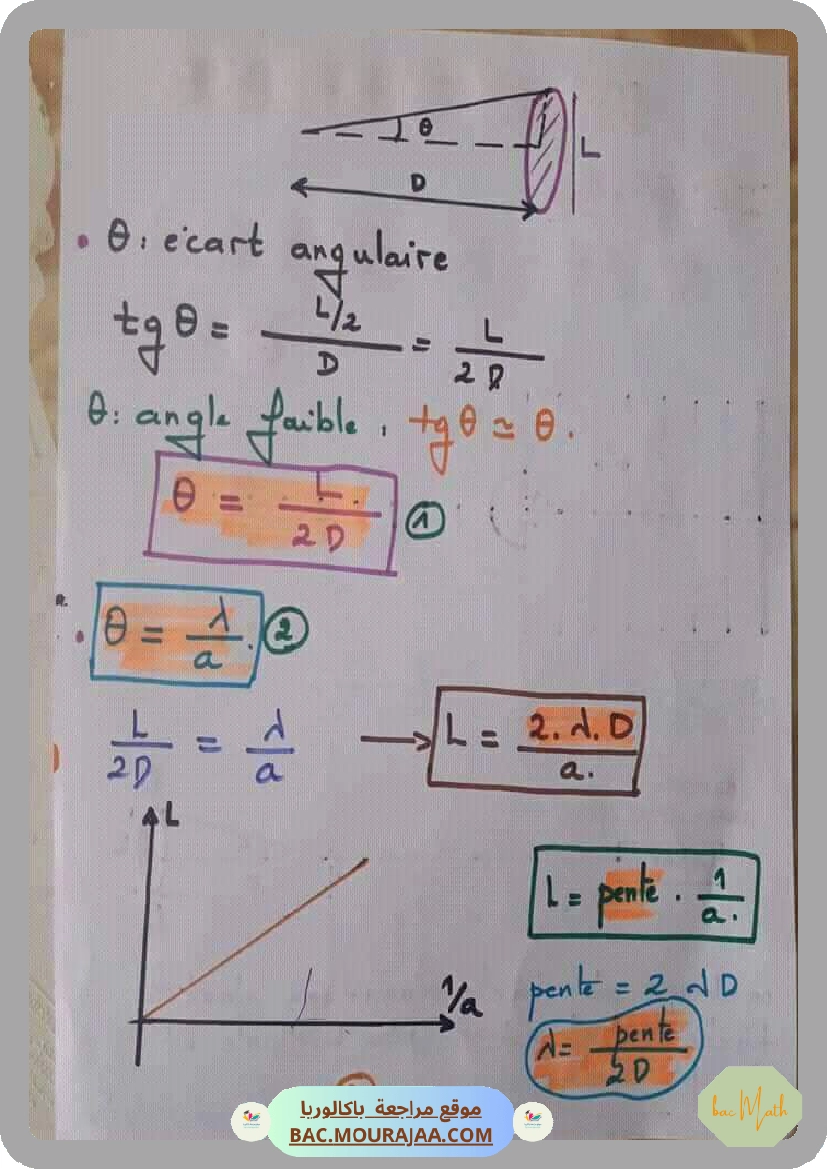 θ
L
D
θ : écart angulaire
tg θ = L/2 / D = L / 2 D
θ : angle faible, tg θ ≃ θ.
θ = L / 2 D ①
θ = λ / a. ②
L / 2D = λ / a → L = 2. λ. D / a.
L
L = pente . 1 / a.
1/a
pente = 2 λ D
λ = pente / 2 D
موقع مراجعة باكالوريا
BAC.MOURAJAA.COM
bac Math